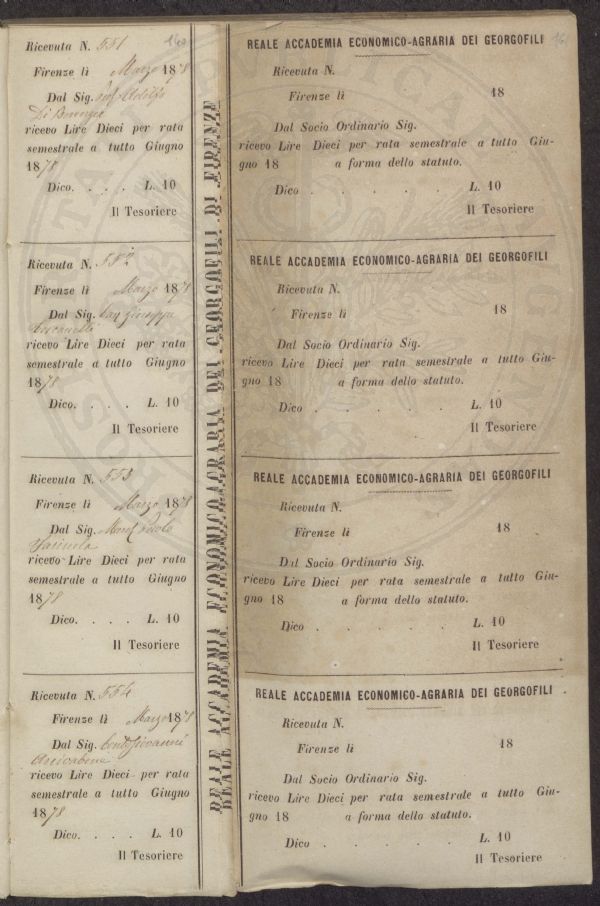 160
Ricevuta N. 551
Firenze lì Marzo 1878
Dal Sig. Adolfo
Di Bourgie
ricevo Lire Dieci per rata
semestrale a tutto Giugno
1878
Dico. . . . L. 10
Il Tesoriere
Ricevuta N. 552
Firenze lì Marzo 1878
Dal Sig. Giuseppe
Toscanelli
ricevo Lire Dieci per rata
semestrale a tutto Giugno
1878
Dico. . . . L. 10
Il Tesoriere
Ricevuta N. 553
Firenze lì Marzo 1878
Dal Sig. March. Paolo
ricevo Lire Dieci per rata
semestrale a tutto Giugno
1878
Dico. . . . L. 10
Il Tesoriere
Ricevuta N. 554
Firenze lì Marzo 1878
Dal Sig. Conte Giovanni
Arrivabene
ricevo Lire Dieci per rata
semestrale a tutto Giugno
1878
Dico. . . . L. 10
Il Tesoriere
REALE ACCADEMIA ECONOMICO-AGRARIA DEI GEORGOFILI DI FIRENZE
161
REALE ACCADEMIA ECONOMICO-AGRARIA DEI GEORGOFILI
Ricevuta N.
Firenze lì 18
Dal Socio Ordinario Sig.
ricevo Lire Dieci per rata semestrale a tutto Giu-
gno 18 a forma dello statuto.
Dico . . . . . L. 10
Il Tesoriere
REALE ACCADEMIA ECONOMICO-AGRARIA DEI GEORGOFILI
Ricevuta N.
Firenze lì 18
Dal Socio Ordinario Sig.
ricevo Lire Dieci per rata semestrale a tutto Giu-
gno 18 a forma dello statuto.
Dico . . . . . L. 10
Il Tesoriere
REALE ACCADEMIA ECONOMICO-AGRARIA DEI GEORGOFILI
Ricevuta N.
Firenze lì 18
Dal Socio Ordinario Sig.
ricevo Lire Dieci per rata semestrale a tutto Giu-
gno 18 a forma dello statuto.
Dico . . . . . L. 10
Il Tesoriere
REALE ACCADEMIA ECONOMICO-AGRARIA DEI GEORGOFILI
Ricevuta N.
Firenze lì 18
Dal Socio Ordinario Sig.
ricevo Lire Dieci per rata semestrale a tutto Giu-
gno 18 a forma dello statuto.
Dico . . . . . L. 10
Il Tesoriere